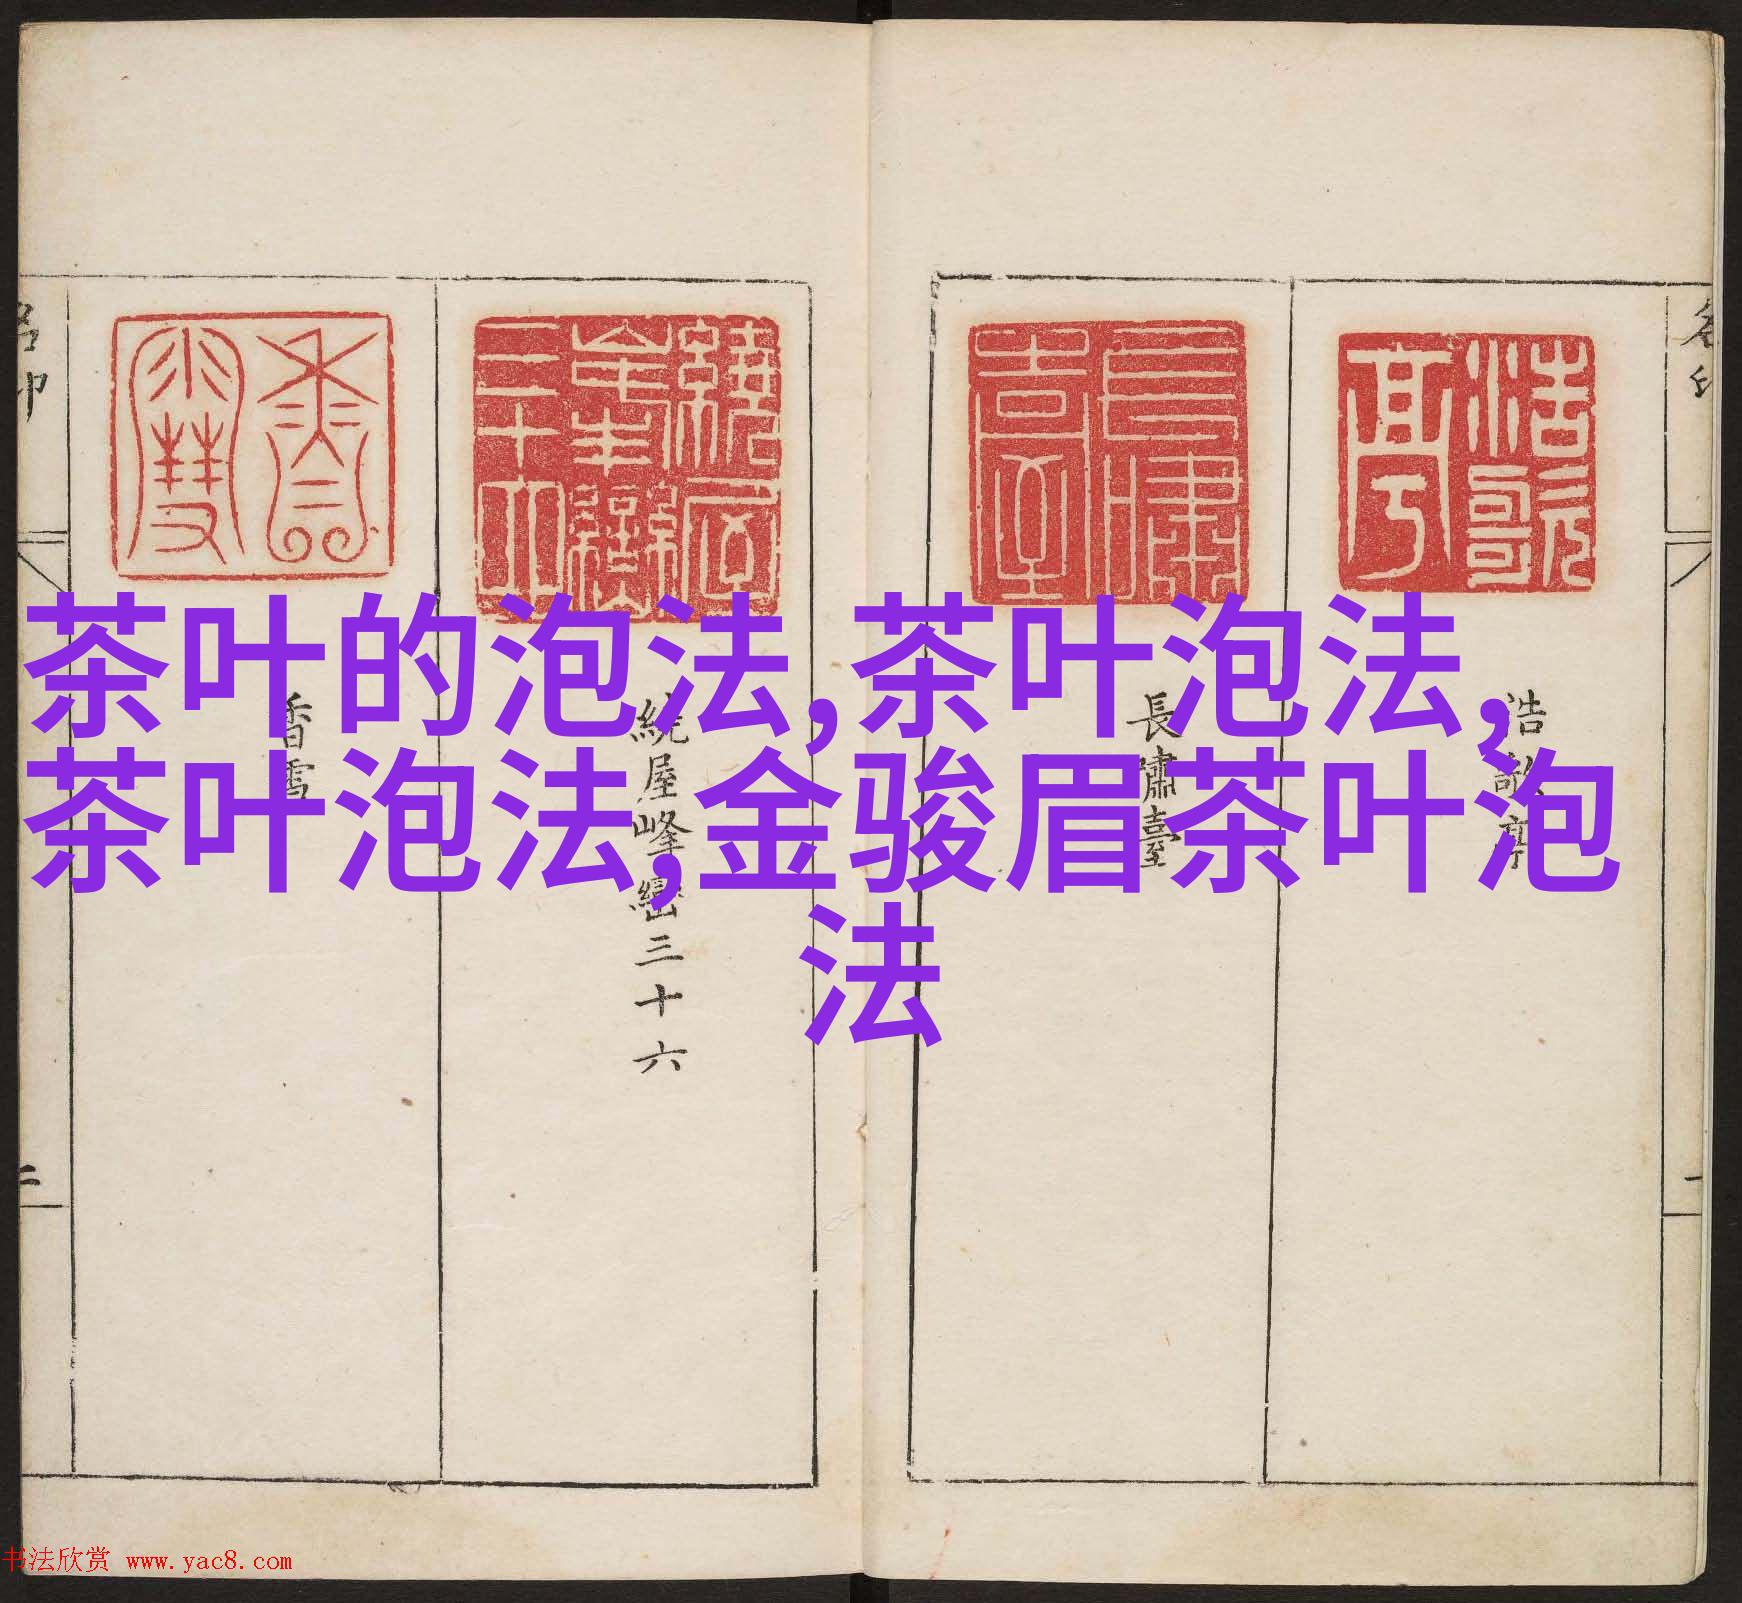 茶叶的泡法,茶叶泡法,
茶叶泡法,金骏眉茶叶泡
法
浩歌亭
長嘯臺
繞屋峰巒三十六
香雪
书法欣赏 www.yac8.com